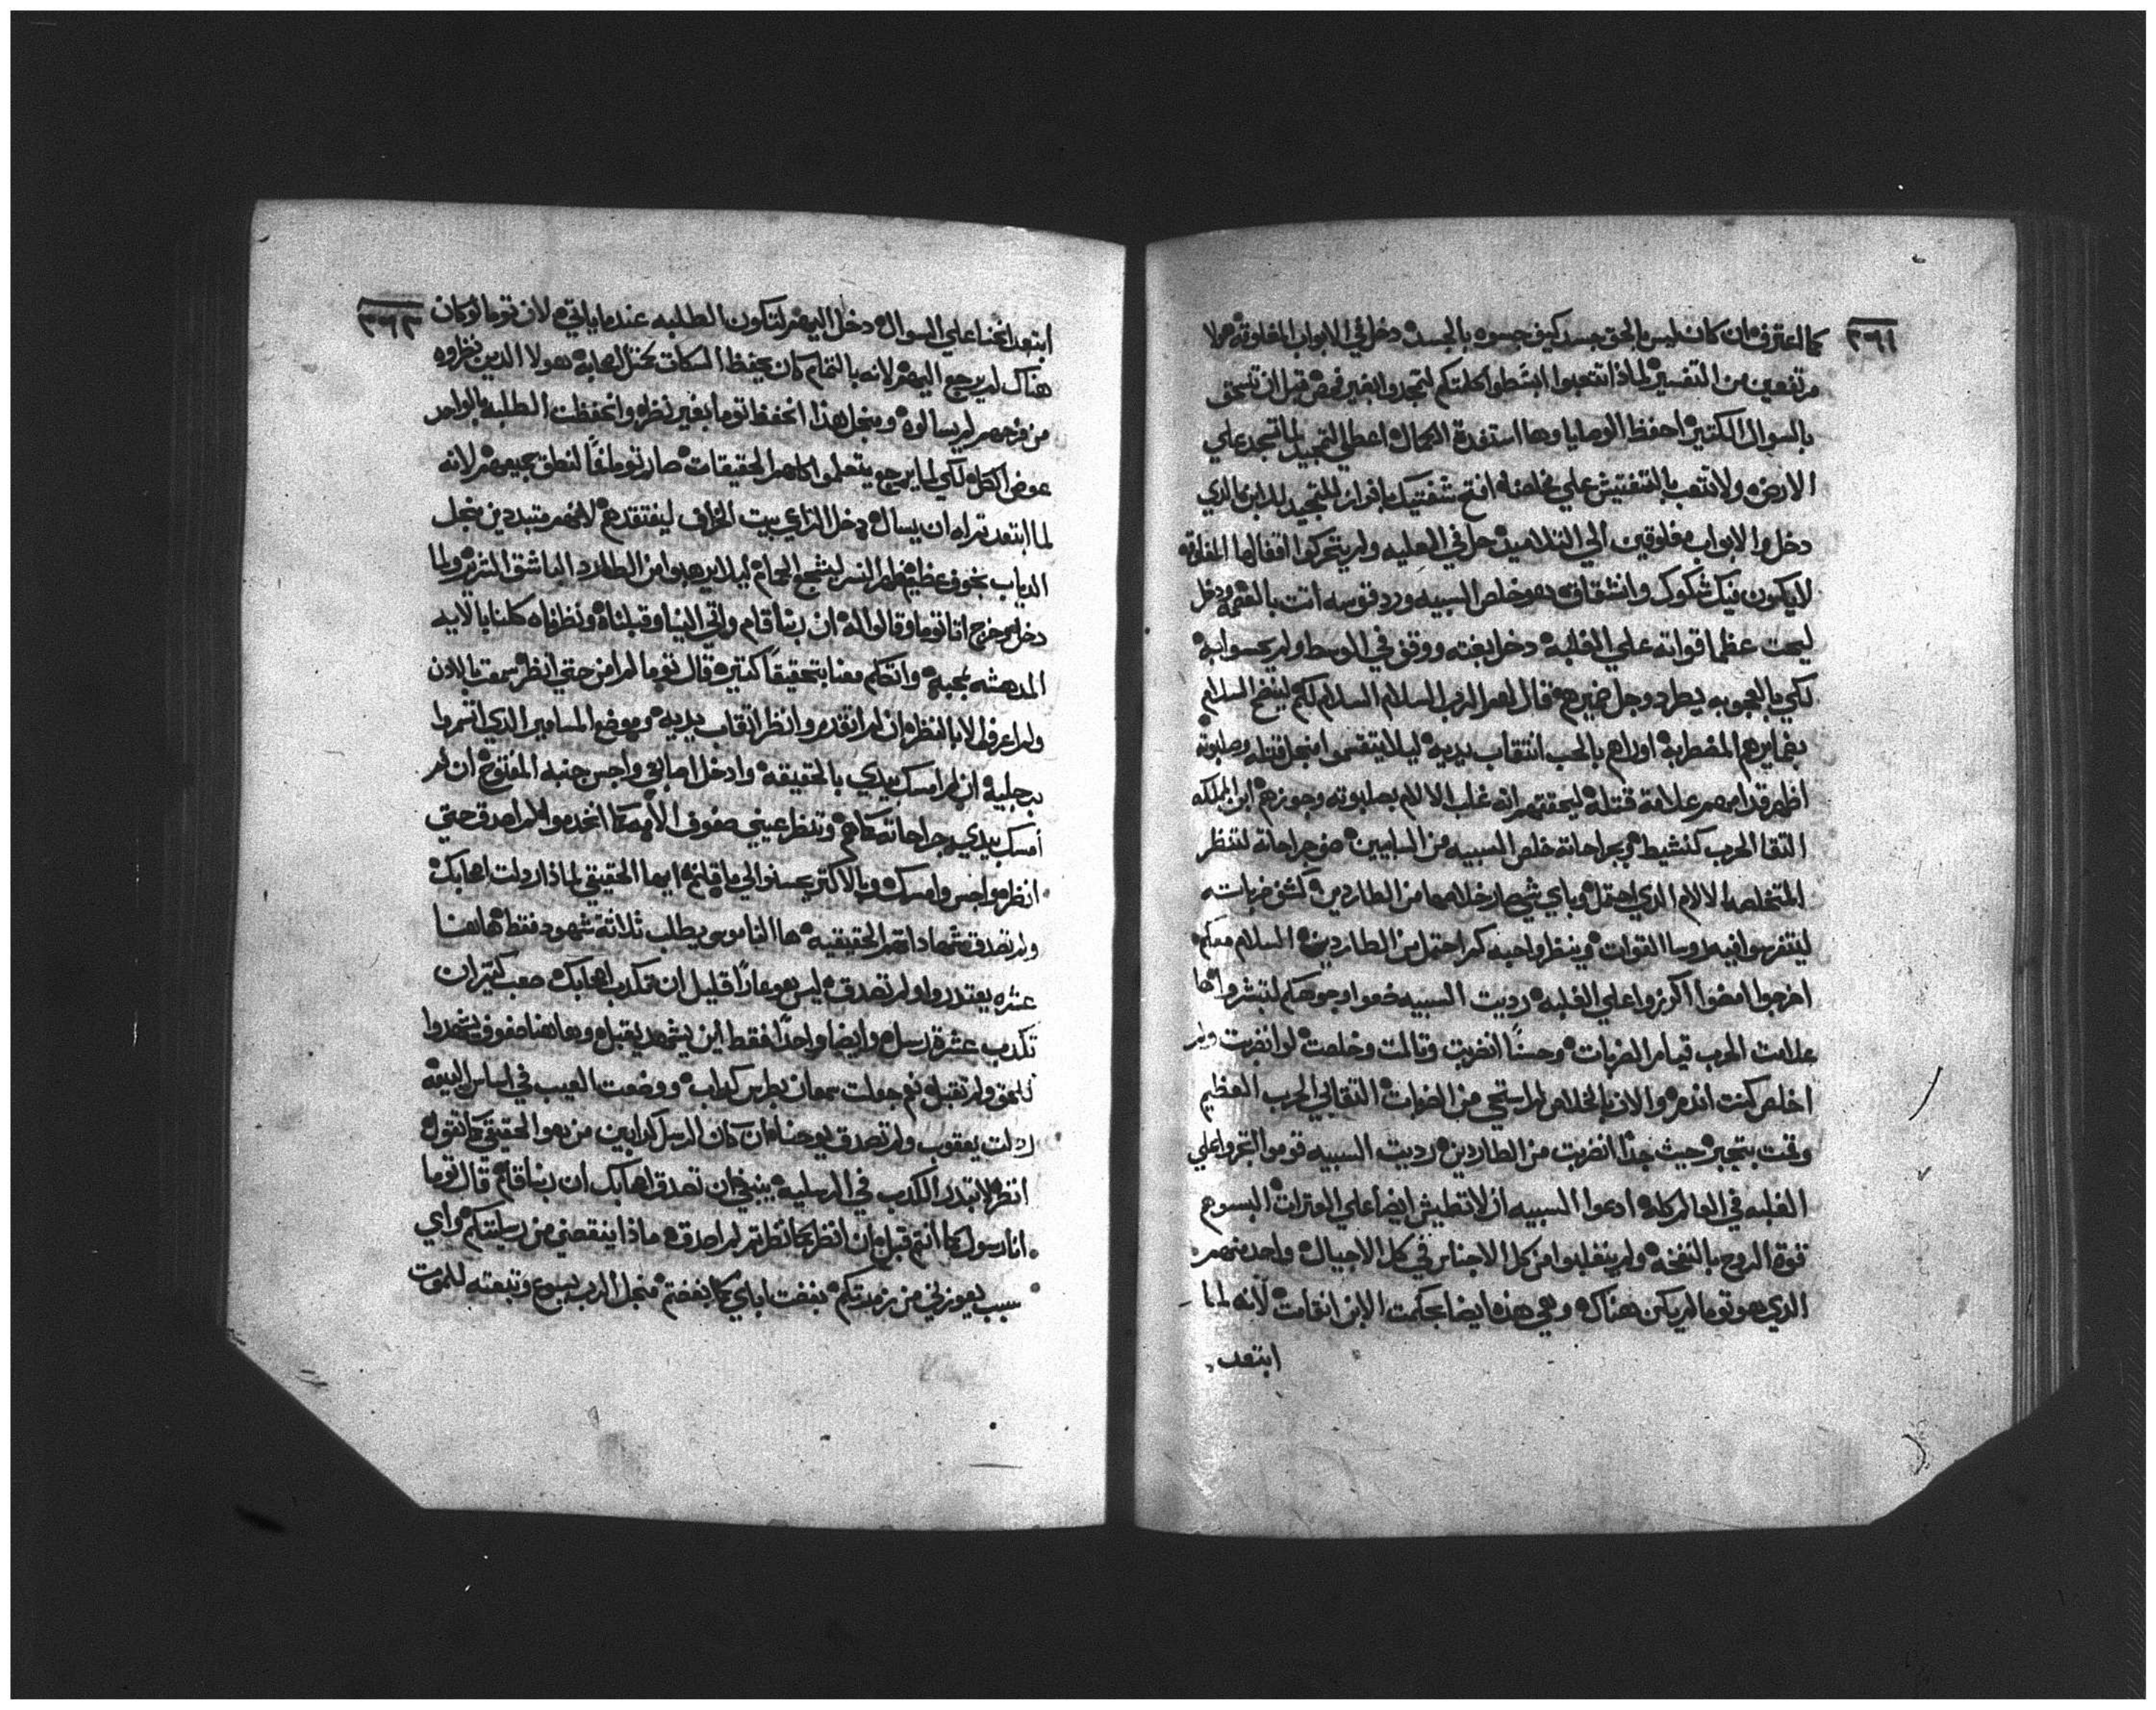 ٣٦١
كما اعترف ان كان لبس بالحق جسد كيف جسوه بالجسد دخل في الابواب المغلوقه هولا
مرتفعين من التفسير لماذا تتعبوا ابسطوا كلمتكم لتمجدوا بغير فحص قبل ان تسحق
بالسوال الكتير احفظ الوصايا وها استفدة الكمال اعطي التمجيد لما تسجد علي
الارض ولا تتعب بالتفتيش علي مخلصنا افتح شفتيك بافراز للتمجيد للابن الدي
دخل والابواب مغلوقين الي التلاميد حل في العليه ولم يتحركوا اقفالها المغلوقه
لايكون فيك شكوك وانشقاق هو خلص السبيه ورد قوسه انت بالقسمه ودخل
ليحت عظما قواته علي الغلبه دخل بغته ووقف في الوسط ولم يحسوا به
لكي بالعجوبه يطرد وجل ضميرهم قال لهم الرب السلام السلام لكم لينضح السلام
بضمايرهم المضطربه اوراهم بالحب انتقاب يديه ليلا يتقسموا منجل قتله وصلبوته
اظهر قدامهم علامة قتله ليحققهم انه غلب الالام بصلبوته وجوزهم ابن الملكه
التقا الحرب كنشيط وبجراحاته خلص السبيه من السابيين صف جراحاته لتنظر
المتخلصه الالام الدي احتمل وباي شي صار خلاصها من الطاردين كشف ضرباته
ليتفرسوا فيه روسا القوات وينظروا حبه كم احتمل من الطاردين السلام معكم
اخرجوا امضوا اكرزوا علي الغلبه رديت السبيه ضعوا وجوهكم لتبشروا ها
علامت الحرب قيام الضربات وحسناً انضربت وتالمت وخلصت لو انضربت ولم
اخلص كنت اندم والان بالخلاص لم استحي من الضربات التقاني الحرب العظيم
وقمت بتجبر حيث جداً انضربت من الطاردين رديت السبيه قوموا اكرزوا علي
الغلبه في العالم كله ادعوا السبيه ان لا تطيش ايضاً علي العترات البسوع
قوة الروح بالنفخه ولم ينغلبوا من كل الاجناس في كل الاجيال واحد منهم
الدي هو توما لم يكن هناك وهي هده ايضاً بحكمت الابن انقامت لانه لما
ابتعد
٣٦٢
ابتعد اتحنا علي السوال دخل اليهم لتكون الطلبه عندما ياتي لان توما لو كان
هناك لم يرجع اليهم لانه بالتمام كان يحفظ السكات كمتل اصحابه هولا الدين نظروه
من فزحهم لم يسالوه ومنجل هذا انحفظ توما بغير نظره وانحفظت الطلبه بالواحد
عوض الكل لكي لما يرجع يتعلموا كلهم الحقيقات صار توما فماً لنطق جميعهم لانه
لما ابتعد تراه ان يسال دخل الراعي بيت الخراف ليفتقدهم لانهم متبددين منجل
الدياب بخوف عظيم طار النسر ليشجع الحمام ليلا يرهبوا من الطارد الباشق المتنمر ولما
دخل وخرج اتا توما وقالوا له ان ربنا قام واتي الينا وقبلناه ونظرناه كلنا بالايه
المدهشه عجبة واتكلم معنا بتحقيقاً كتيره قال توما لم امن حتي انظر سمعت بالادن
ولم اعرف الا بالنظر ان لم اتقدم وانظر انتقاب يديه وموضع المسامير الدي انسمروا
برجليه ان لم امسك بيدي بالحقيقه وادخل اصابعي واجس جنبه المفتوح ان لم
امسك بيدي جراحاته كلهم وتنظر عيني صفوف الامه كما انخدموا لم اصدق حتي
انظر واجس وامسك وبالاكتر يحسنوا لي ما قلتم ايها الحقيقي لماذا ردلت اصحابك
ولم تصدق شهاداتهم الحقيقيه ها الناموس يطلب ثلاثة شهود فقط هاهنا
عشره يعتدروا ولم تصدق ليس هو عاراً قليل ان تكدب اصحابك صعب كتير ان
تكدب عشرة رسل وايضاً واحداً فقط اين يشهد يقبل وها هنا صفوف يشهدوا
للحق ولم تقبل نعم جعلت سمعان بطرس كداب ووضعت العيب في اساس البيعه
ردلت يعقوب ولم تصدق يوحنا ان كان الرسل كدابين من هو الحقيقي كما تقول
انظر لا تبدر الكدب في الرسليه ينبغي ان تصدق اصحابك ان ربنا قام قال توما
انا رسول كما انتم قبل ان انظر كما نظرتم لم اصدق ماذا ينقصني من رسليتكم واي
سبب يعوزني من زمرتكم بغضت اباي كما بغضتم منجل الرب يسوع وتبعته للموت